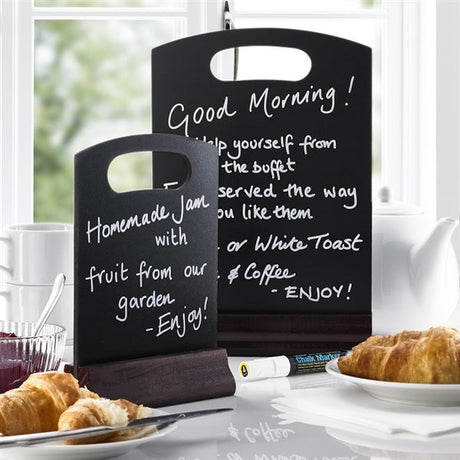 Good Morning!
Help yourself from
the buffet
served the way
you like them
or White Toast
& Coffee
- ENJOY!
Homemade Jam
with
fruit from our
garden
- Enjoy!
Chalk Marker